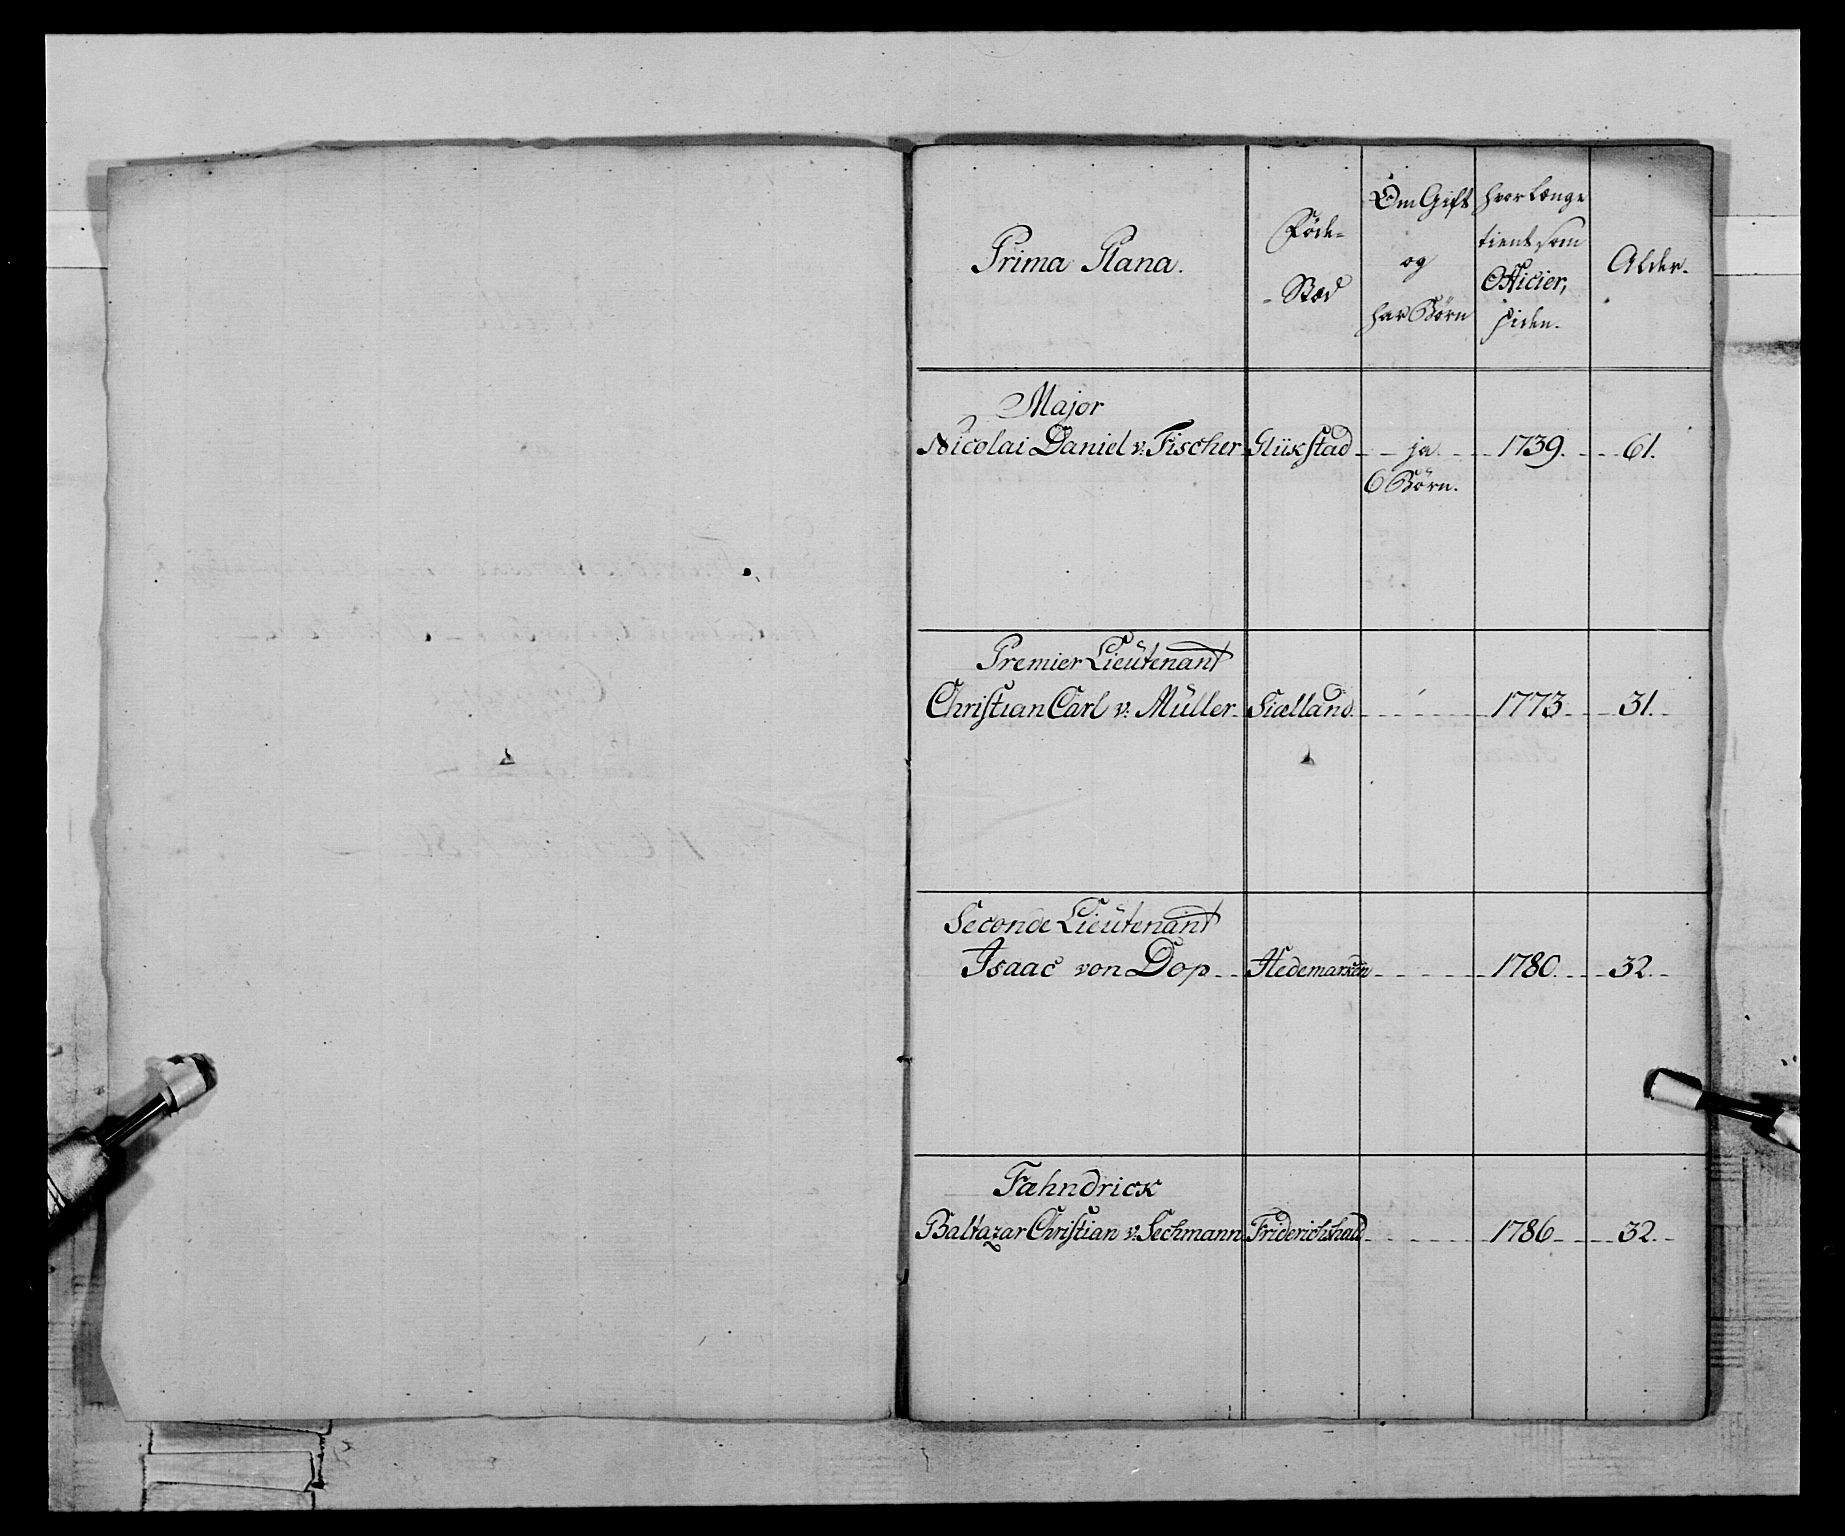 Prima Plana.
Føde-
-Stæd
Om Gift
og
har Börn
hvor længe
tient som
Officier,
siden.
Alder.
Major
Nicolai Daniel v: Fischer Glükstad ja 1739. 61.
6 Börn.
Premier Lieutenant
Christian Carl v: Müller Siælland. 1773 31.
Seconde Lieutenant
Isaac von Dop Hedemarken 1780. 32.
Fæhndrick
Baltazar Christian v: Sechmann Friderichshald 1786 32.